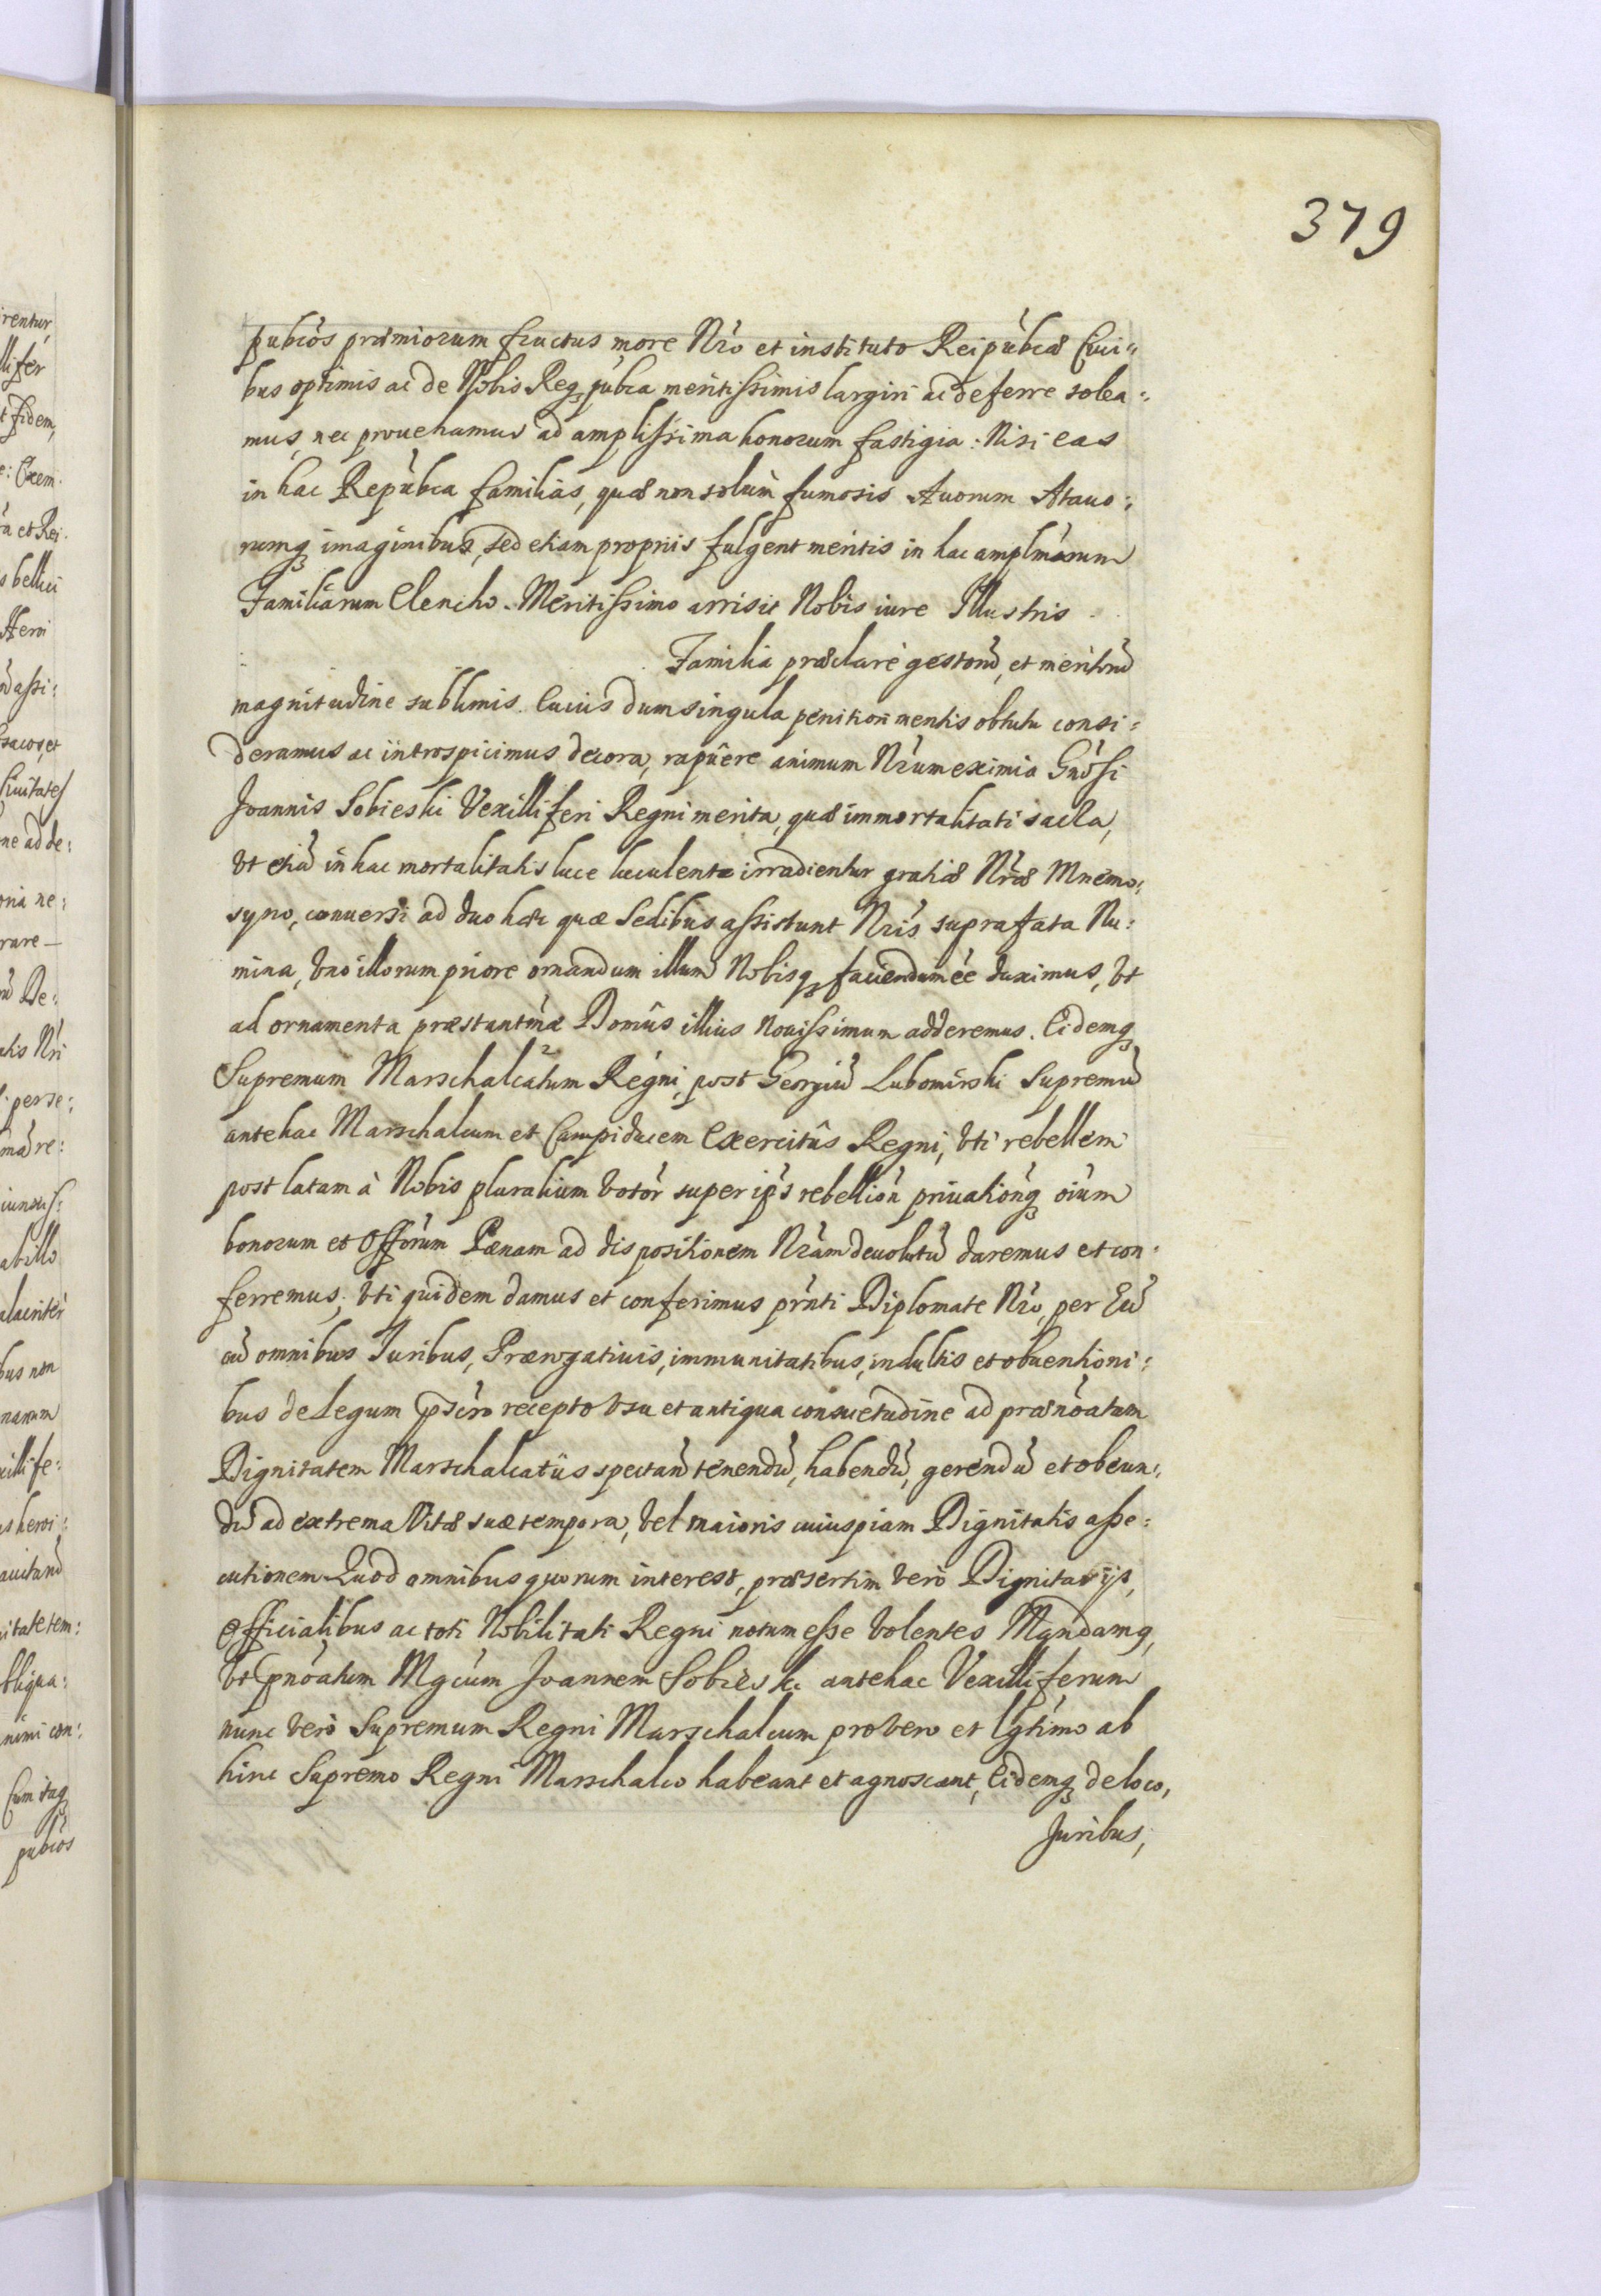 379
pubcos præmiorum fructus more Nro et instituto Reipubcæ Ciui"
bus optimis ac de Nobis Reqꝫ pubca meritissimis largiri ac deferre solea:
mus, nec prouehamus ad amplissima honorum fastigia: Nisi eas
in hac Repubca familias, quæ non solum fumosis Auorum Atauo:
rumqꝫ imaginibus, sed etiam proprijs fulgent meritis in hac amplmarum
Familiarum Elencho. Meritissimo arrisit Nobis iure Illustris
Familia præclare gestorũ, et meritorũ
magnitudine sublimis. Cuius dum singula penitiori mentis obtutu consi:
deramus ac introspicimus decora, rapuere animum Nrum eximia Gnosi
Joannis Sobieski Vexilliferi Regni merita, quæ immortalitati sacra,
vt etiã in hac mortalitatis luce luculenta irradientur gratiæ Nræ Mnemo:
syno, conuersi ad duo hæc quæ Sedibus assistunt Nris suprafata Nu:
mina, vno illorum priore ornandum illum Nobisqꝫ faciendum ee duximus, vt
ad ornamenta præstantmæ Domûs illius nouissimum adderemus. Eidemqꝫ
Supremum Marschalcatum Regni, post Georgiũ Lubomirski Supremũ
antehac Marschalcum et Campiducem Exercitûs Regni, vti rebellem
post latam à Nobis pluralium votor super ips rebellion priuationqꝫ oium
bonorum et Offorum Pænam ad dispositionem Nram deuolutũ daremus et con:
ferremus, vti quidem damus et conferimus prnti Diplomate Nro, per Eũ
cũ omnibus Juribus, Prærogatiuis, immunitatibus, indultis et obuentioni:
bus de Legum præscro recepto vsu et antiqua consuetudine ad prænoatam
Dignitatem Marschalcatûs spectan tenendũ, habendũ, gerendũ et obeun:
dũ ad extrema Vitæ suæ tempora, vel maioris cuiuspiam Dignitatis asse:
cutionem Quod omnibus quorum interest, præsertim verò Dignitarijs,
Officialibus ac toti Nobilitati Regni notum esse volentes Mandamq,
vt pnoatum Mgcum Joannem Sobieski antehac Vexilliferum
nunc verò Supremum Regni Marschalcum pro vero et lgtimo ab
hinc Supremo Regni Marschalco habeant et agnoscant, Eidemqꝫ de loco,
Juribus,